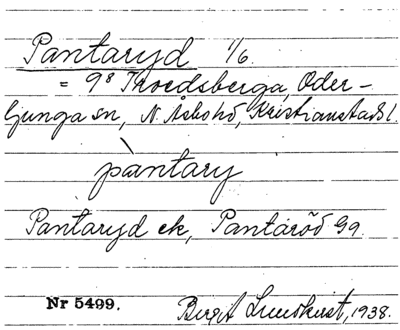 Pantaryd 1/6
= 9⁸ Troedsberga, Oder-
ljunga sn, N. Åsbo hd, Kristianstads l.
pàntary
Pantaryd ek, Pantaröd Gg
Nr 5499. Birgit Lundkvist, 1938.